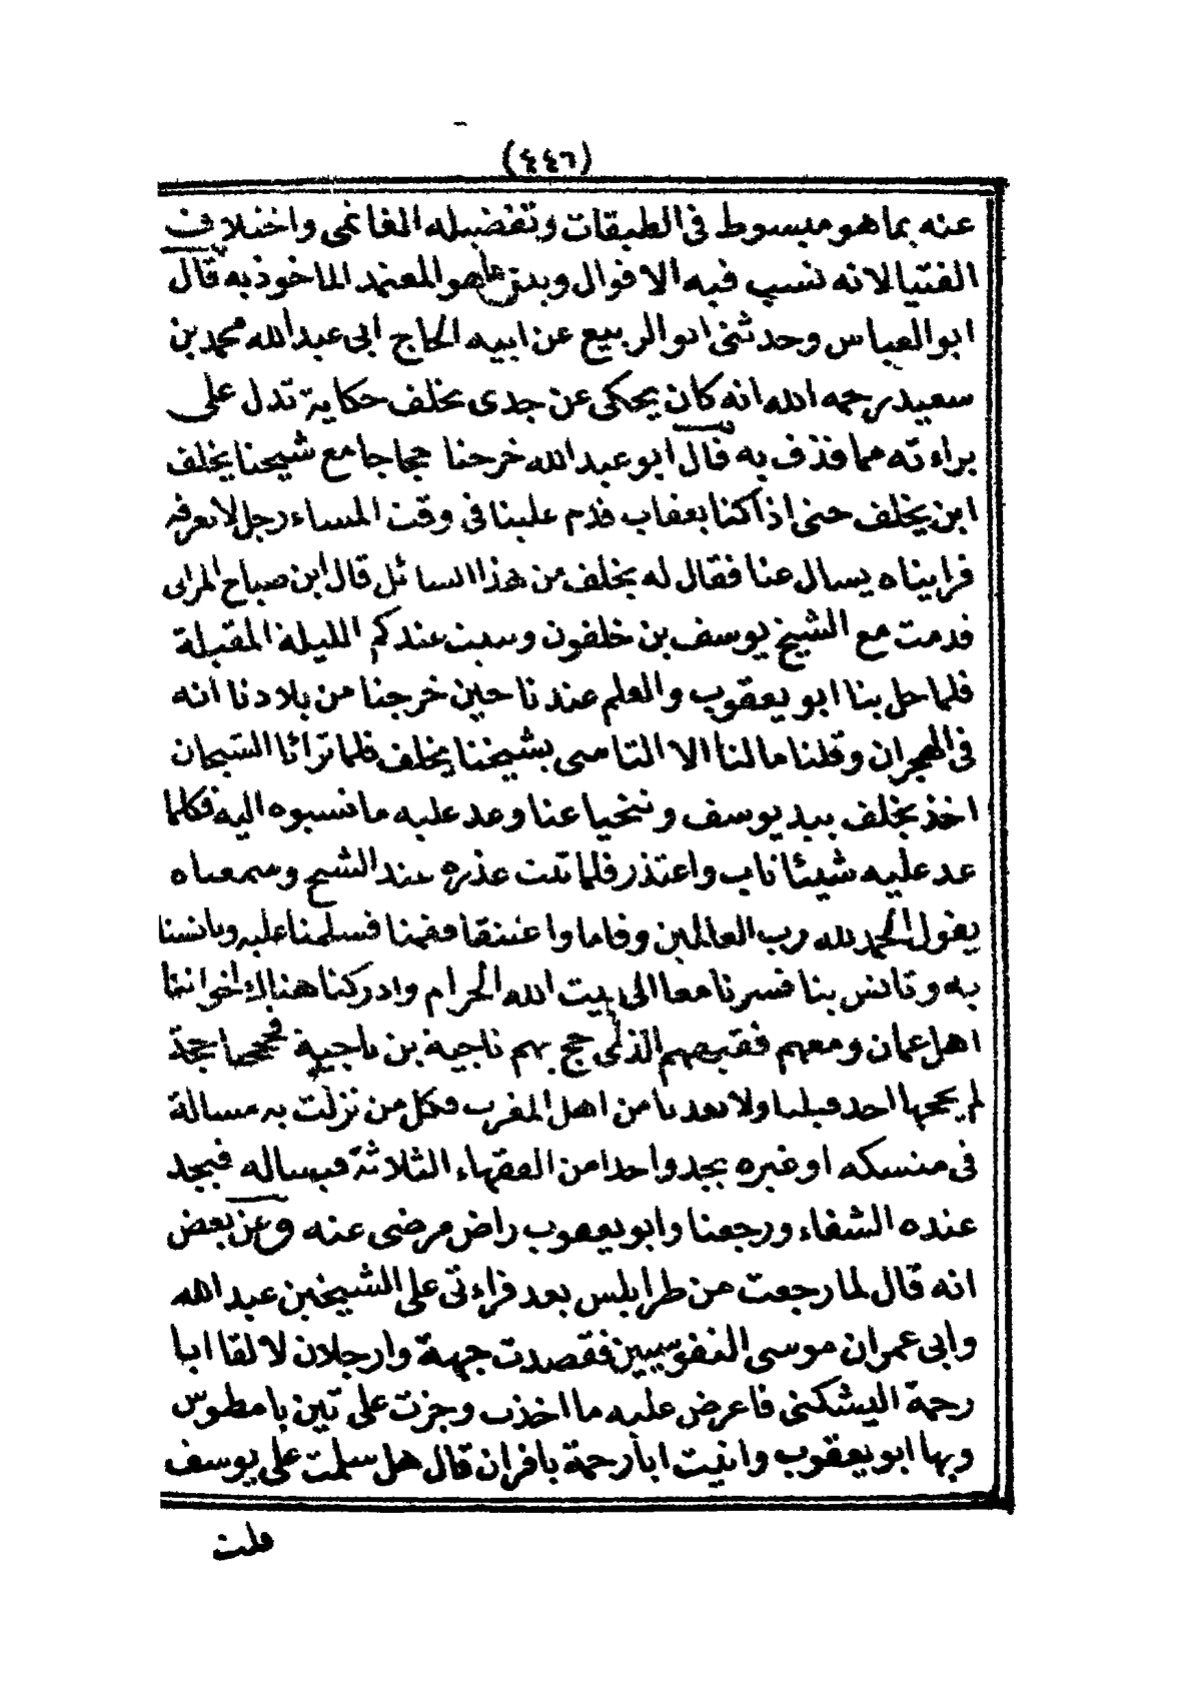 (٤٤٦)
عنه بما هو مبسوط فى الطبقات وتفضيله الغانمى واختلاف
الفتيا لانه نسب فيه الاقوال وبين ما هو المعتمد الماخوذ به قال
ابو العباس وحدثنى ابو الربيع عن ابيه الحاج ابى عبد الله محمد بن
سعيد رحمه الله انه كان يحكى عن جدى يخلف حكاية تدل على
براءته مما قذف به قال ابو عبد الله خرجنا حجاجا مع شيخنا يخلف
ابن يخلف حتى اذا كنا بعقاب قدم علينا فى وقت المساء رجل لا نعرفه
فرايناه يسال عنا فقال له يخلف من هذا السائل قال ابن صباح المزاى
قدمت مع الشيخ يوسف بن خلفون وسيبت عندكم الليلة المقبلة
فلما حل بنا ابو يعقوب والعلم عندنا حين خرجنا من بلادنا انه
فى الهجران وقلنا ما لنا الا التاسى بشيخنا يخلف فلما ترائا الشيخان
اخذ يخلف بيد يوسف وتنحيا عنا وعد عليه ما نسبوه اليه فكلما
عد عليه شيئا تاب واعتذر فلما تمت عذره عند الشيخ وسمعناه
يقول الحمد لله رب العالمين وقاما واعتنقا فقمنا فسلمنا عليه وتانسنا
به وتانس بنا فسرنا معا الى بيت الله الحرام وادركنا هناك اخواننا
اهل عمان ومعهم فقيههم الذى حج بهم ناجية بن ناجية فحججنا حجة
لم يحجها احد قبلنا ولا بعدنا من اهل المغرب فكل من نزلت به مسالة
فى منسكه او غيره يجد واحدا من الفقهاء الثلاثة فيساله فيجد
عنده الشفاء ورجعنا وابو يعقوب راض مرضى عنه وعن بعض
انه قال لما رجعت من طرابلس بعد قراءتى على الشيخين عبد الله
وابى عمران موسى النفوسيين فقصدت جهة وارجلان لا لقا ابا
رحمة اليشكنى فاعرض عليه ما اخذت وجزت على تين بامطوس
وبها ابو يعقوب واتيت ابا رحمة بافران قال هل سلمت على يوسف
قلت